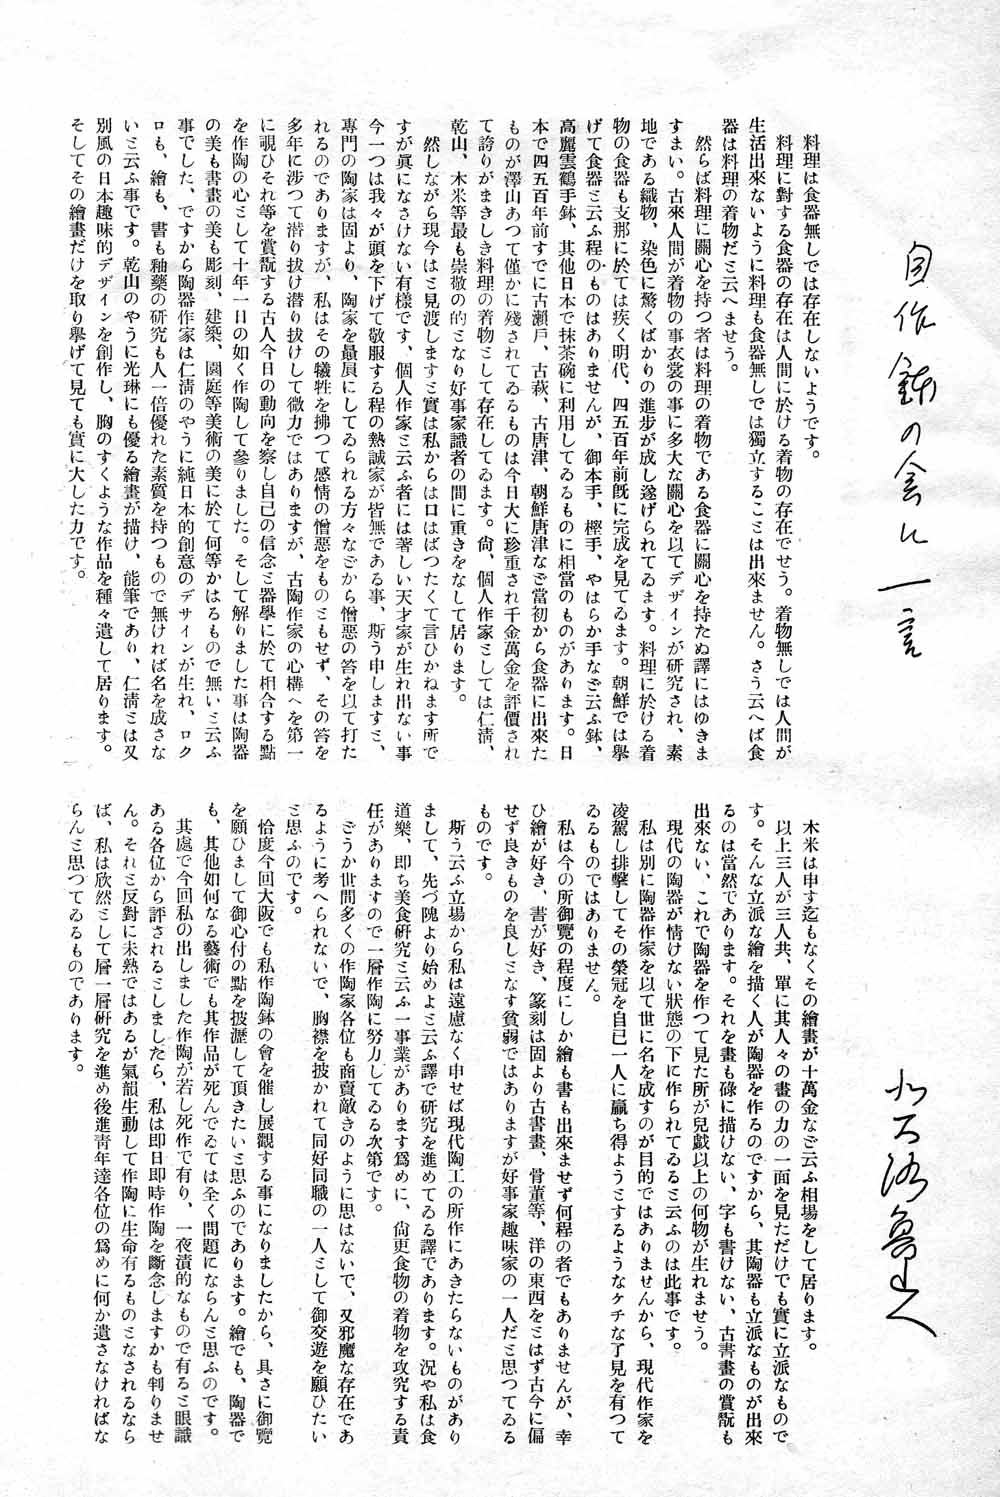 自作鉢の會に一言
北大路魯山人
料理は食器無しでは存在しないようです。
料理に對する食器の存在は人間に於ける着物の存在でせう。着物無しでは人間が
生活出來ないように料理も食器無しでは獨立することは出來ません。さう云へば食
器は料理の着物だと云へませう。
然らば料理に關心を持つ者は料理の着物である食器に關心を持たぬ譯にはゆきま
すまい。古來人間が着物の事衣裳の事に多大な關心を以てデザインが研究され、素
地である織物、染色に驚くばかりの進步が成し遂げられてゐます。料理に於ける着
物の食器も支那に於ては疾く明代、四五百年前旣に完成を見てゐます。朝鮮では擧
げて食器と云ふ程のものはありませんが、御本手、樫手、やはらか手など云ふ鉢、
高麗雲鶴手鉢、其他日本で抹茶碗に利用してゐるものに相當のものがあります。日
本で四五百年前すでに古瀨戶、古萩、古唐津、朝鮮唐津など當初から食器に出來た
ものが澤山あつて僅かに殘されてゐるものは今日大に珍重され千金萬金を評價され
て誇りがましき料理の着物として存在してゐます。尙、個人作家としては仁淸、
乾山、木米等最も崇敬の的となり好事家識者の間に重きをなして居ります。
然しながら現今はと見渡しますと實は私からは口はばつたくて言ひかねます所で
すが眞になさけない有樣です、個人作家と云ふ者には著しい天才家が生れ出ない事
今一つは我々が頭を下げて敬服する程の熱誠家が皆無である事、斯う申しますと、
專門の陶家は固より、陶家を最屓にしてゐられる方々などから憎惡の笞を以て打た
れるのでありますが、私はその犧牲を拂つて感情の憎惡をものともせず、その笞を
多年に涉つて潜り拔け潜り拔けして微力ではありますが、古陶作家の心構へを第一
に覗ひそれ等を賞翫する古人今日の動向を察し自己の信念と器學に於て相合する點
を作陶の心として十年一日の如く作陶して參りました。そして解りました事は陶器
の美も書畫の美も彫刻、建築、園庭等美術の美に於て何等かはるもので無いと云ふ
事でした、ですから陶器作家は仁淸のやうに純日本的創意のデサインが生れ、ロク
ロも、繪も、書も釉藥の研究も人一倍優れた素質を持つもので無ければ名を成さな
いと云ふ事です。乾山のやうに光琳にも優る繪畫が描け、能筆であり、仁淸とは又
別風の日本趣味的デザインを創作し、胸のすくような作品を種々遺して居ります。
そしてその繪畫だけを取り擧げて見ても實に大した力です。
木米は申す迄もなくその繪畫が十萬金など云ふ相場をして居ります。
以上三人が三人共、單に其人々の畫の力の一面を見ただけでも實に立派なもので
す。そんな立派な繪を描く人が陶器を作るのですから、其陶器も立派なものが出來
るのは當然であります。それを畫も碌に描けない、字も書けない、古書畫の賞翫も
出來ない、これで陶器を作つて見た所が兒戲以上の何物が生れませう。
現代の陶器が情けない狀態の下に作られてゐると云ふのは此事です。
私は別に陶器作家を以て世に名を成すのが目的ではありませんから、現代作家を
凌駕し排擊してその榮冠を自己一人に贏ち得ようとするようなケチな了見を有つて
ゐるものではありません。
私は今の所御覽の程度にしか繪も書も出來ませず何程の者でもありませんが、幸
ひ繪が好き、書が好き、篆刻は固より古書畫、骨董等、洋の東西をとはず古今に偏
せず良きものを良しとなす貧弱ではありますが好事家趣味家の一人だと思つてゐる
ものです。
斯う云ふ立場から私は遠慮なく申せば現代陶工の所作にあきたらないものがあり
まして、先づ隗より始めよと云ふ譯で研究を進めてゐる譯であります。況や私は食
道樂、卽ち美食硏究と云ふ一事業があります爲めに、尙更食物の着物を攻究する責
任がありますので一層作陶に努力してゐる次第です。
どうか世間多くの作陶家各位も商賣敵きのように思はないで、又邪魔な存在であ
るように考へられないで、胸襟を披かれて同好同職の一人として御交遊を願ひたい
と思ふのです。
恰度今回大阪でも私作陶鉢の會を催し展觀する事になりましたから、具さに御覽
を願ひまして御心付の點を披瀝して頂きたいと思ふのであります。繪でも、陶器で
も、其他如何なる藝術でも其作品が死んでゐては全く問題にならんと思ふのです。
其處で今回私の出しました作陶が若し死作で有り、一夜漬的なもので有ると眼識
ある各位から評されるとしましたら、私は卽日卽時作陶を斷念しますかも判りませ
ん。それと反對に未熟ではあるが氣韻生動して作陶に生命有るものとなされるなら
ば、私は欣然として層一層硏究を進め後進靑年達各位の爲めに何か遺さなければな
らんと思つてゐるものであります。